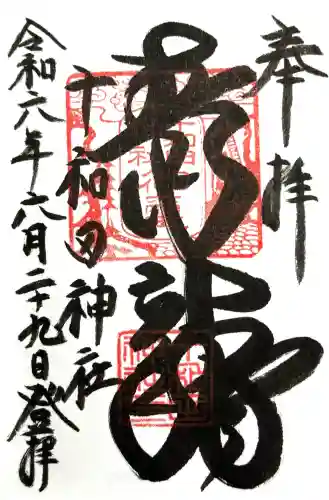 奉拝
青龍
十和田神社
令和六年六月二十九日登拝